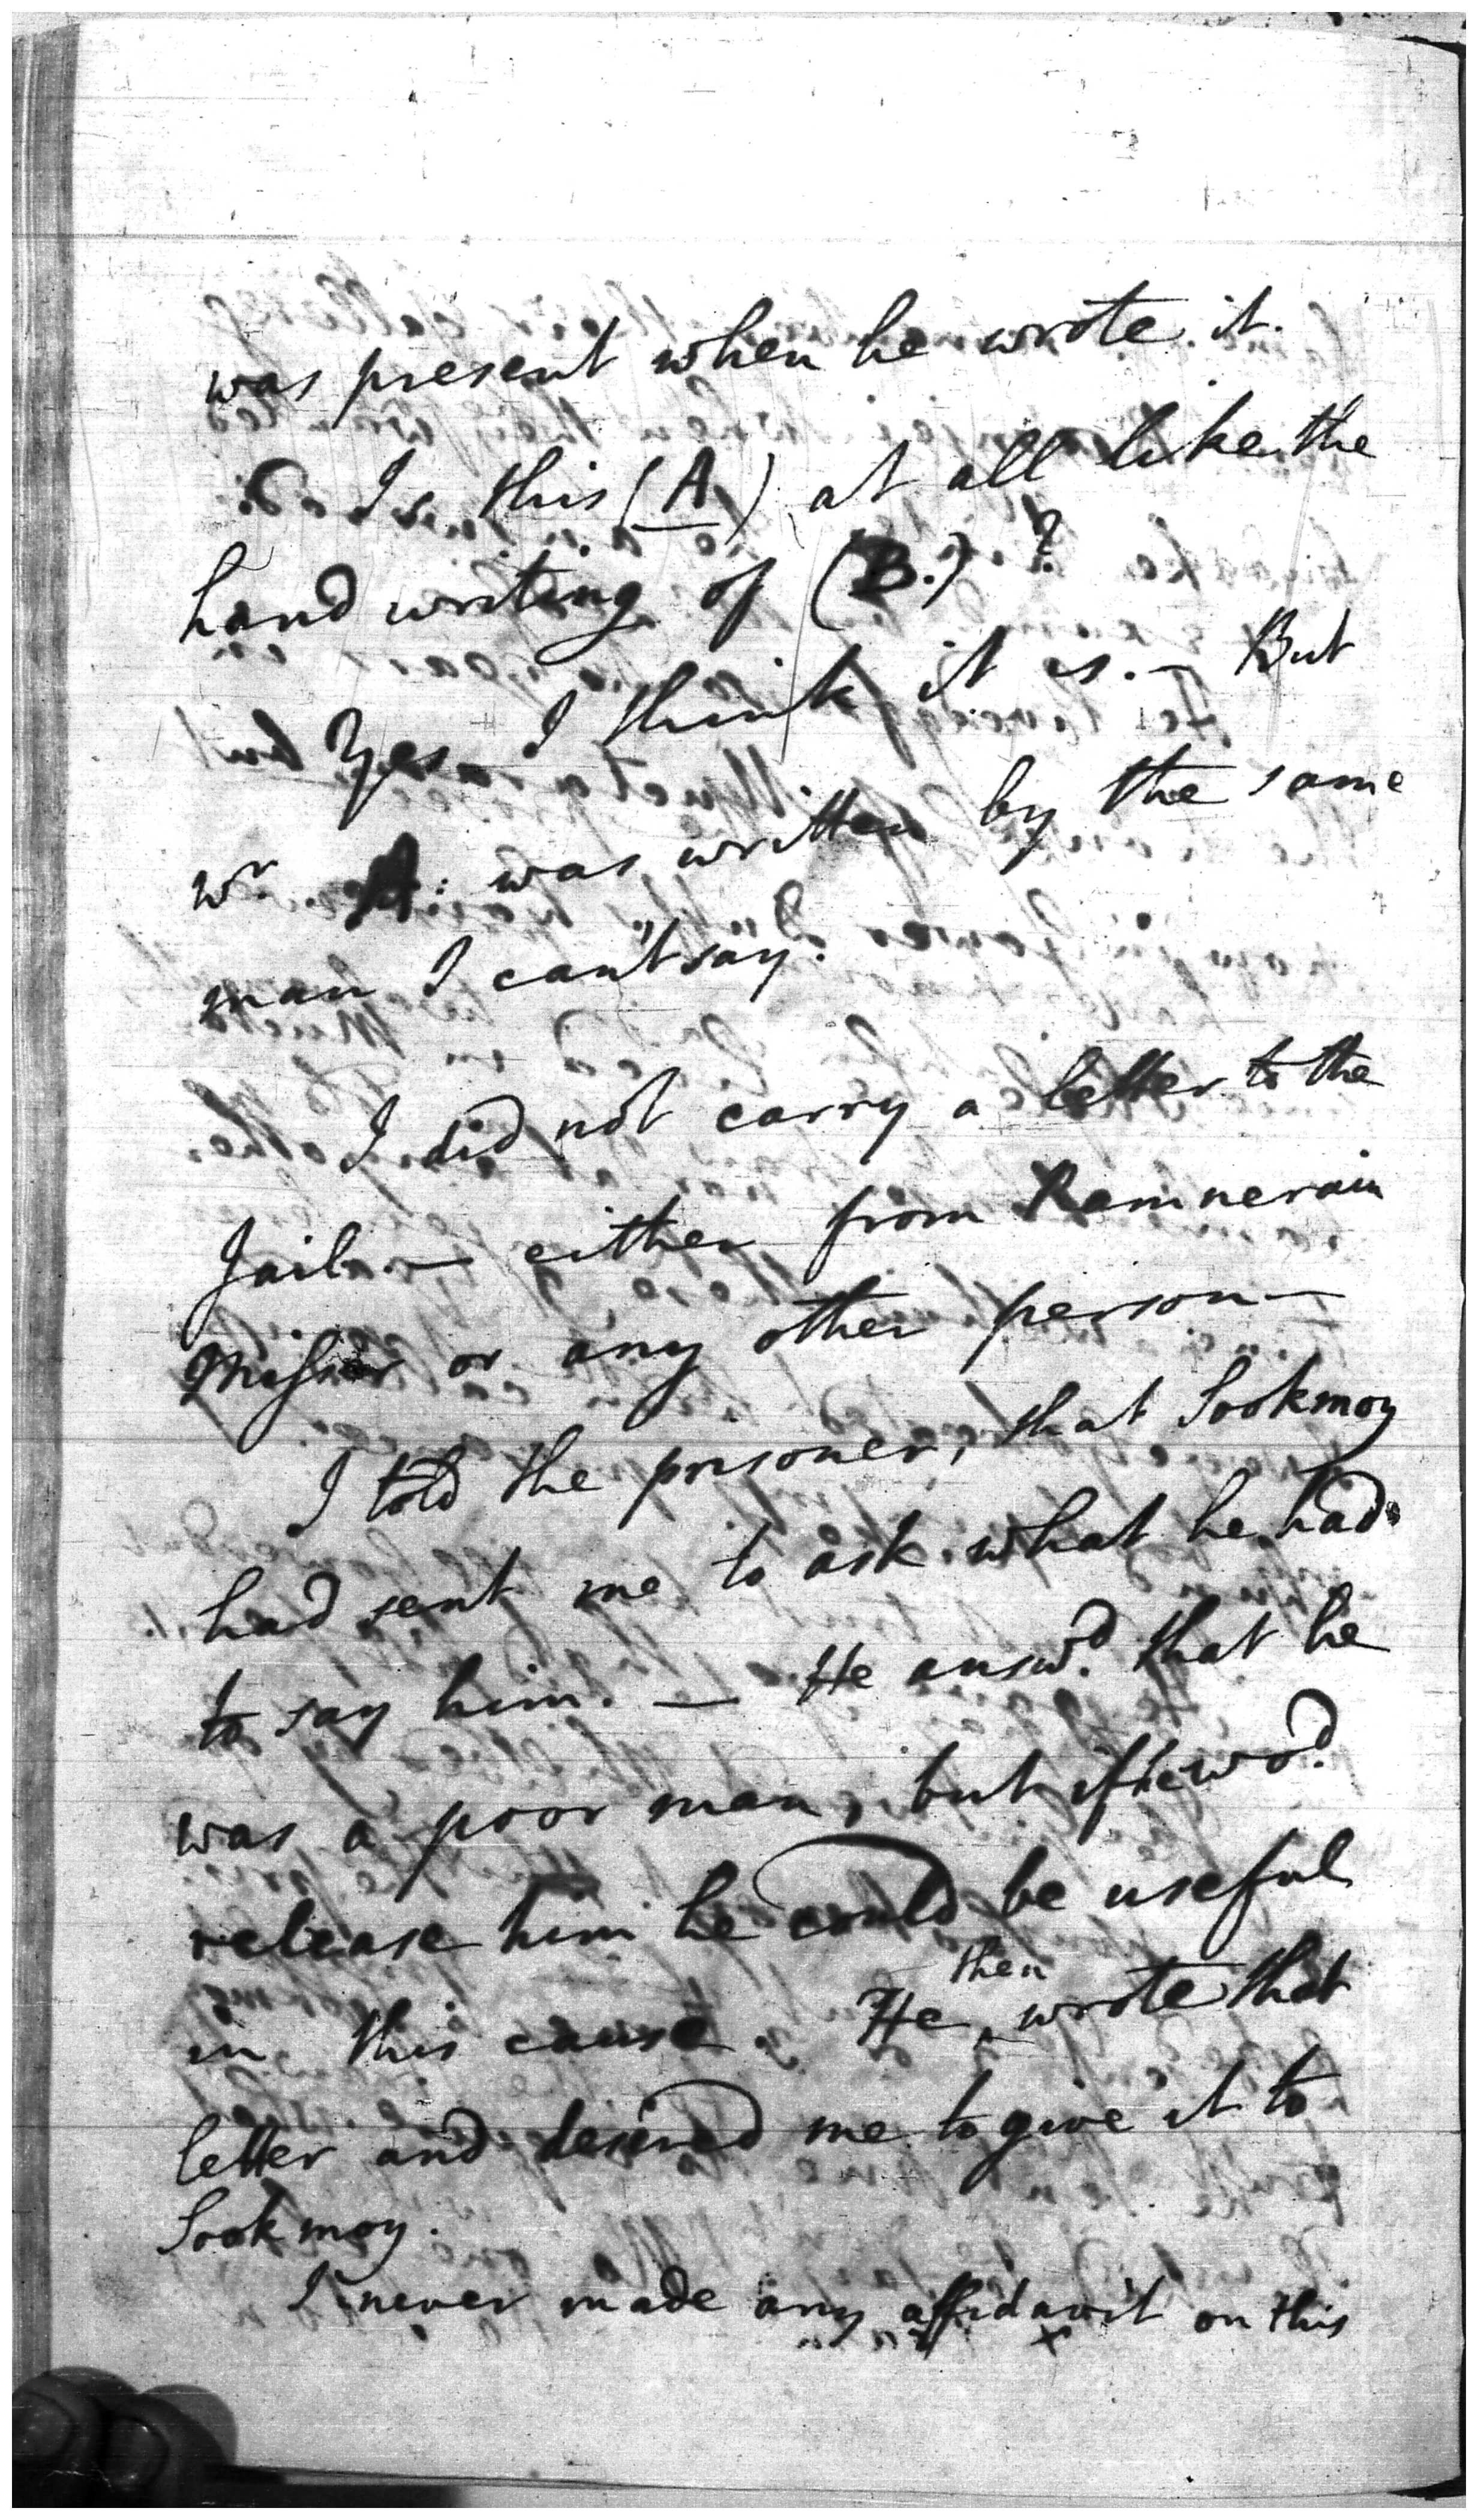 was present when he wrote it.
Is this (A) at all like the
hand writing of (B.)?
Yes I think it is. — But
wr A: was written by the same
man I can't say.
I did not carry a letter to the
Jail — either from Ramnerain
Misser or any other person —
I told the prisoner, that Sookmoy
had sent me to ask what he had
to say him. — He answd. that he
was a poor man, but if he wod.
release him he could be useful
in this cause. He then wrote that
letter and desired me to give it to
Sookmoy.
I never made any affidavit on this